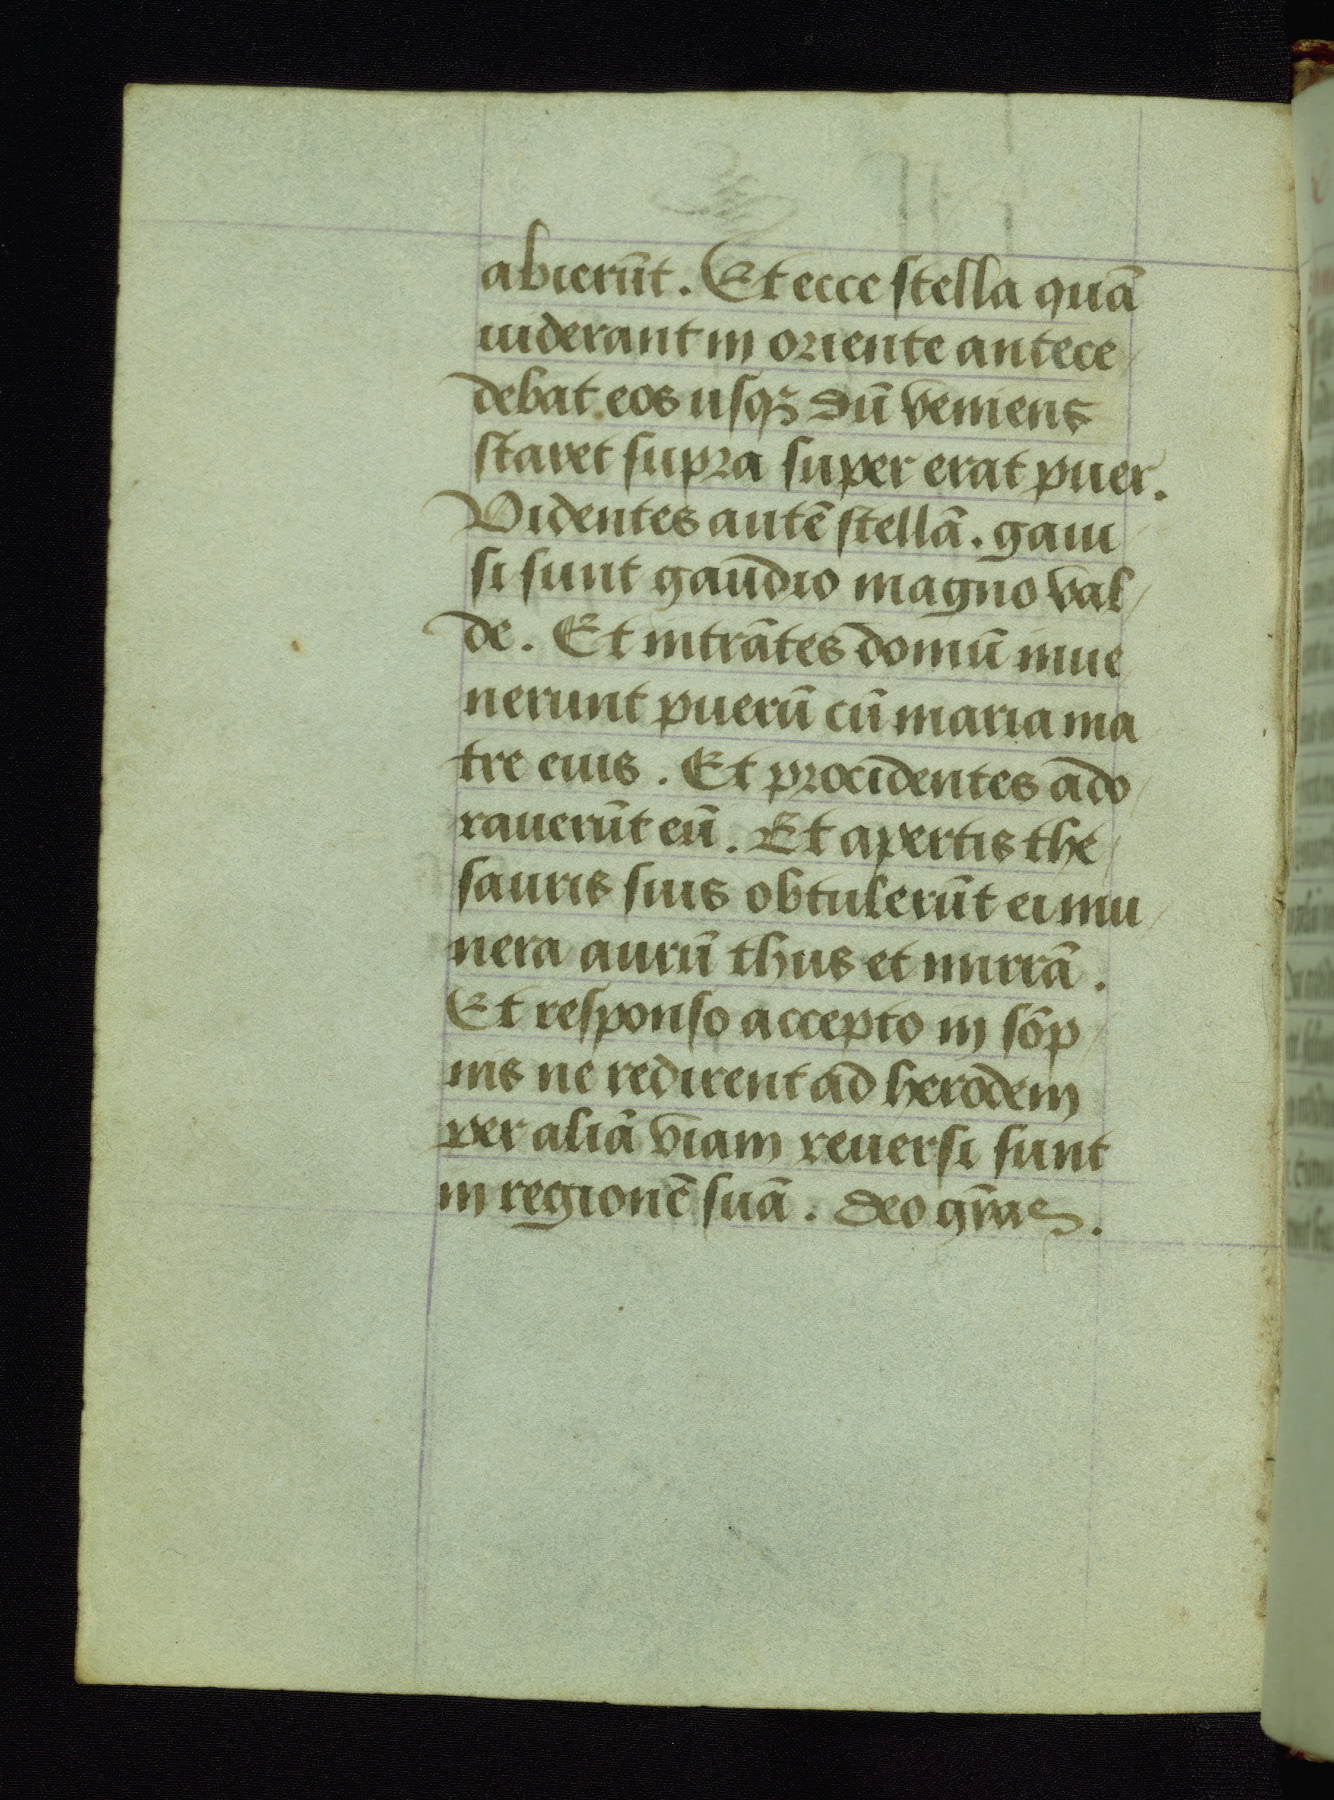 abierūt. Et ecce stella quā
uiderant in oriente antece
debat eos usqꝫ dū veniens
staret supra super erat puer.
Videntes autē stellā. gaui
si sunt gaudio magno val
de. Et intrātes domū inue
nerunt puerū cū maria ma
tre eius. Et procidentes ado
rauerūt eū. Et apertis the
sauris suis obtulerūt ei mu
nera aurū thus et mirrā.
Et responso accepto in sōp
nis ne redirent ad herodem
per aliā viam reuersi sunt
in regionē suā. deo gr̄as.